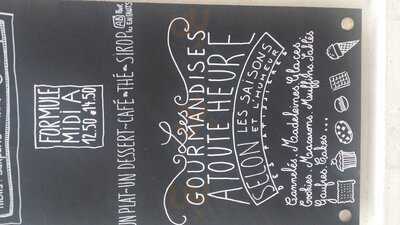 FORMULE
MIDI À
12.50 & 14.50
UN PLAT-UN DESSERT-CAFÉ-THÉ-SIROP
Les
GOURMANDISES
A TOUTE HEURE
SELON LES SAISONS
ET L'HUMEUR
DES PATISSIERES
Cannelés. Madeleines. Glaces
Cookies. Macarons. Muffins. Sablés
Gaufres. Cakes...